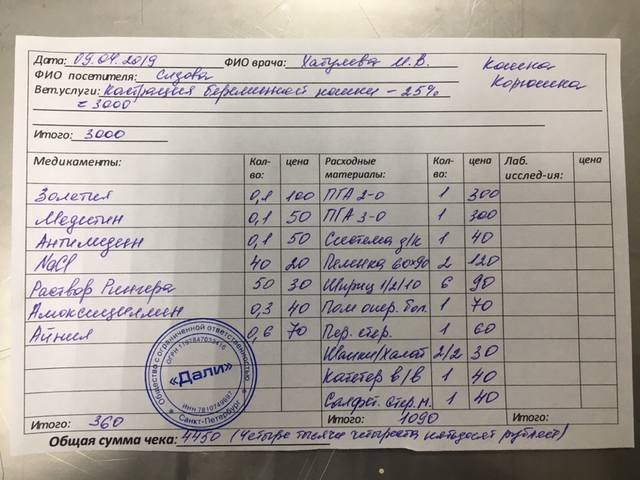 Дата: 09.04.2019 ФИО врача: Хатулева М.В. Кошка
ФИО посетителя: Сизова Корюшка
Вет.услуги: Кастрация беременной кошки – 25%
= 3000
Итого: 3000
Медикаменты: Кол-во: цена Расходные материалы: Кол-во: цена Лаб. исслед-ия: цена
Золетил 0,1 100 ПГА 2-0 1 300
Медитин 0,1 50 ПГА 3-0 1 300
Антимедин 0,1 50 Система д/к 1 40
NaCl 40 20 Пеленка 60х90 2 120
Раствор Рингера 50 30 Шприц 1/2/10 6 90
Амоксициллин 0,3 40 Поп опер. бол. 1 70
Айнил 0,6 70 Пер. стер. 1 60
Шапки/Халат 2/2 30
Катетер в/в 1 40
Салфет. стер. м. 1 40
Итого: 360 Итого: 1090 Итого:
Общая сумма чека: 4450 (Четыре тысячи четыреста пятьдесят рублей)
Общество с ограниченной ответственностью
«Дали»
Санкт-Петербург